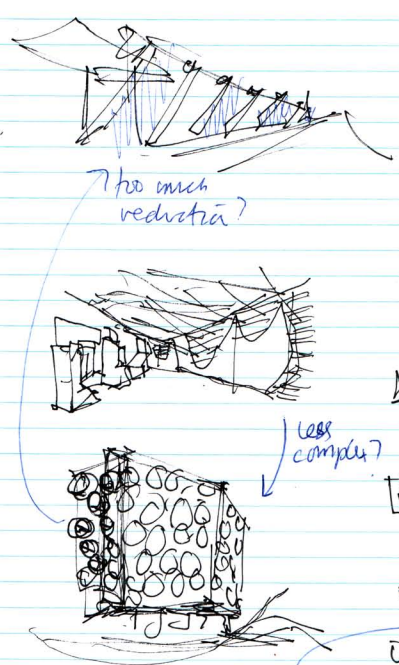 too much
reduction?
less
complex?